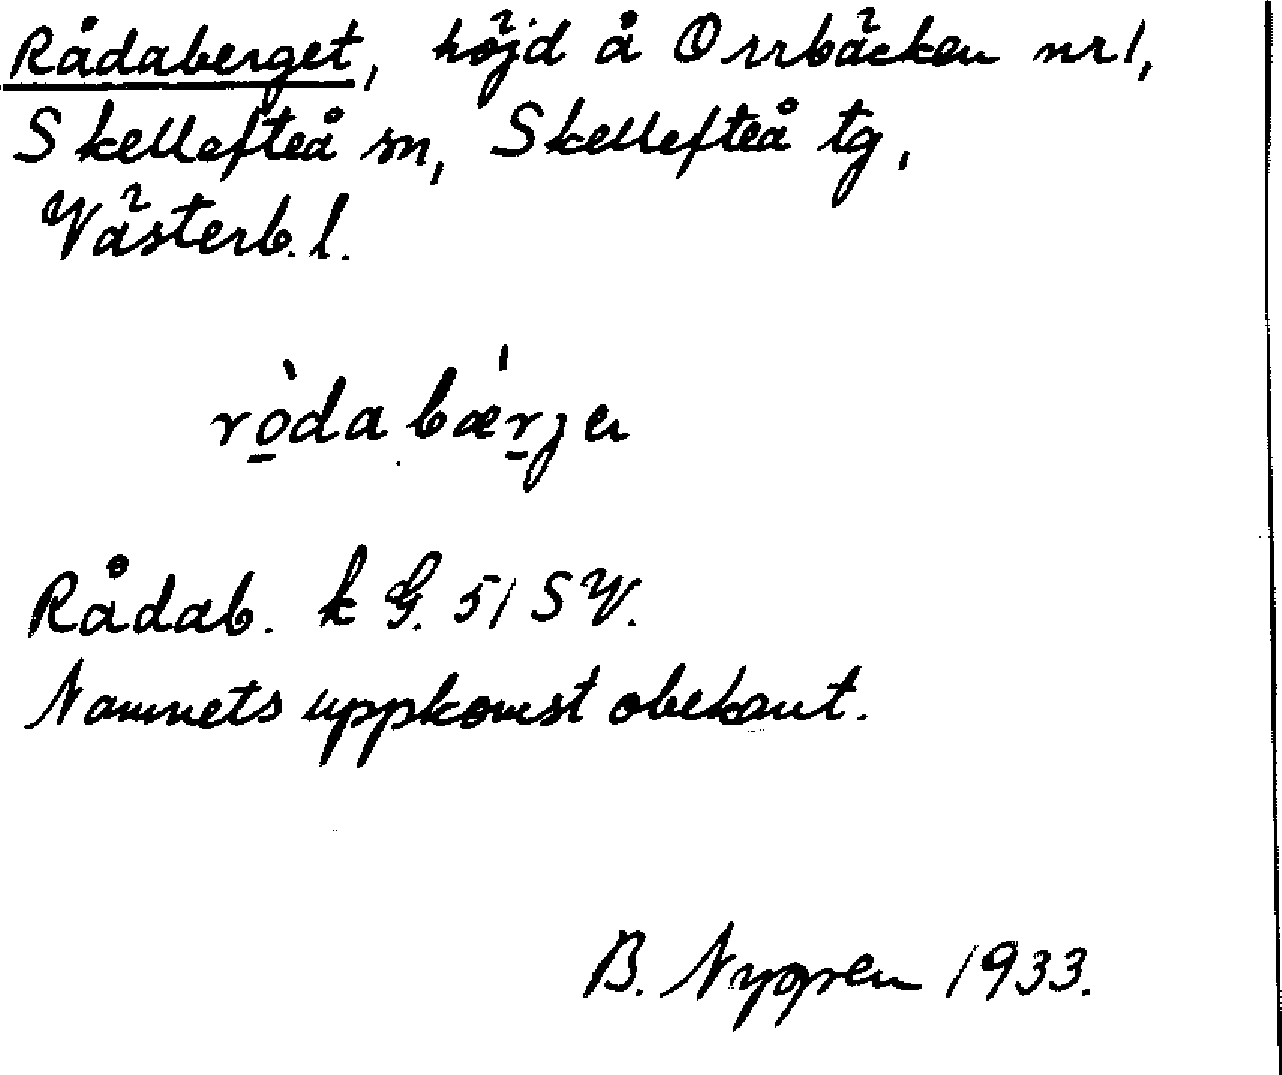 Rådaberget, höjd å Orrbäcken nr 1,
Skellefteå sn, Skellefteå tg,
Västerb. l.
rò̱da bǽṟjeɹ
Rådab. k G. 51 SV.
Namnets uppkomst obekant.
B. Nygren 1933.